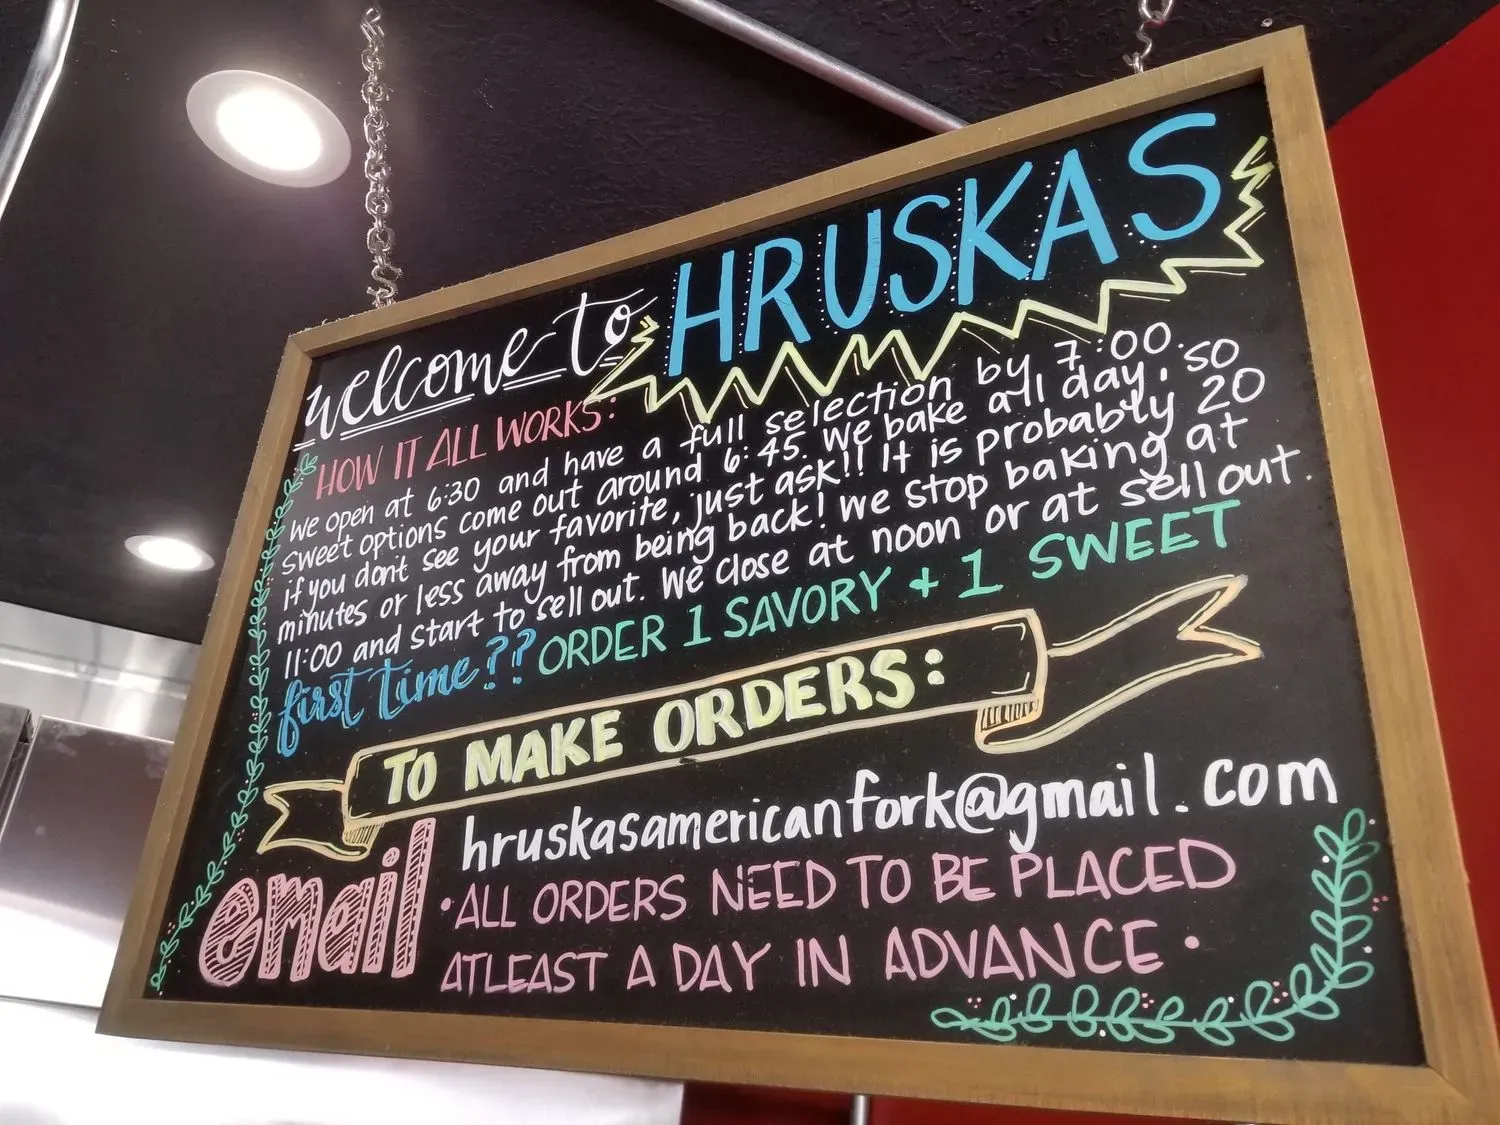 welcome to HRUSKAS
HOW IT ALL WORKS:
We open at 6:30 and have a full selection by 7:00.
Sweet options come out around 6:45. We bake all day, so
if you don't see your favorite, just ask!! It is probably 20
minutes or less away from being back! We stop baking at
11:00 and start to sell out. We close at noon or at sell out.
first time?? ORDER 1 SAVORY + 1 SWEET
TO MAKE ORDERS:
email hruskasamericanfork@gmail.com
•ALL ORDERS NEED TO BE PLACED
ATLEAST A DAY IN ADVANCE•